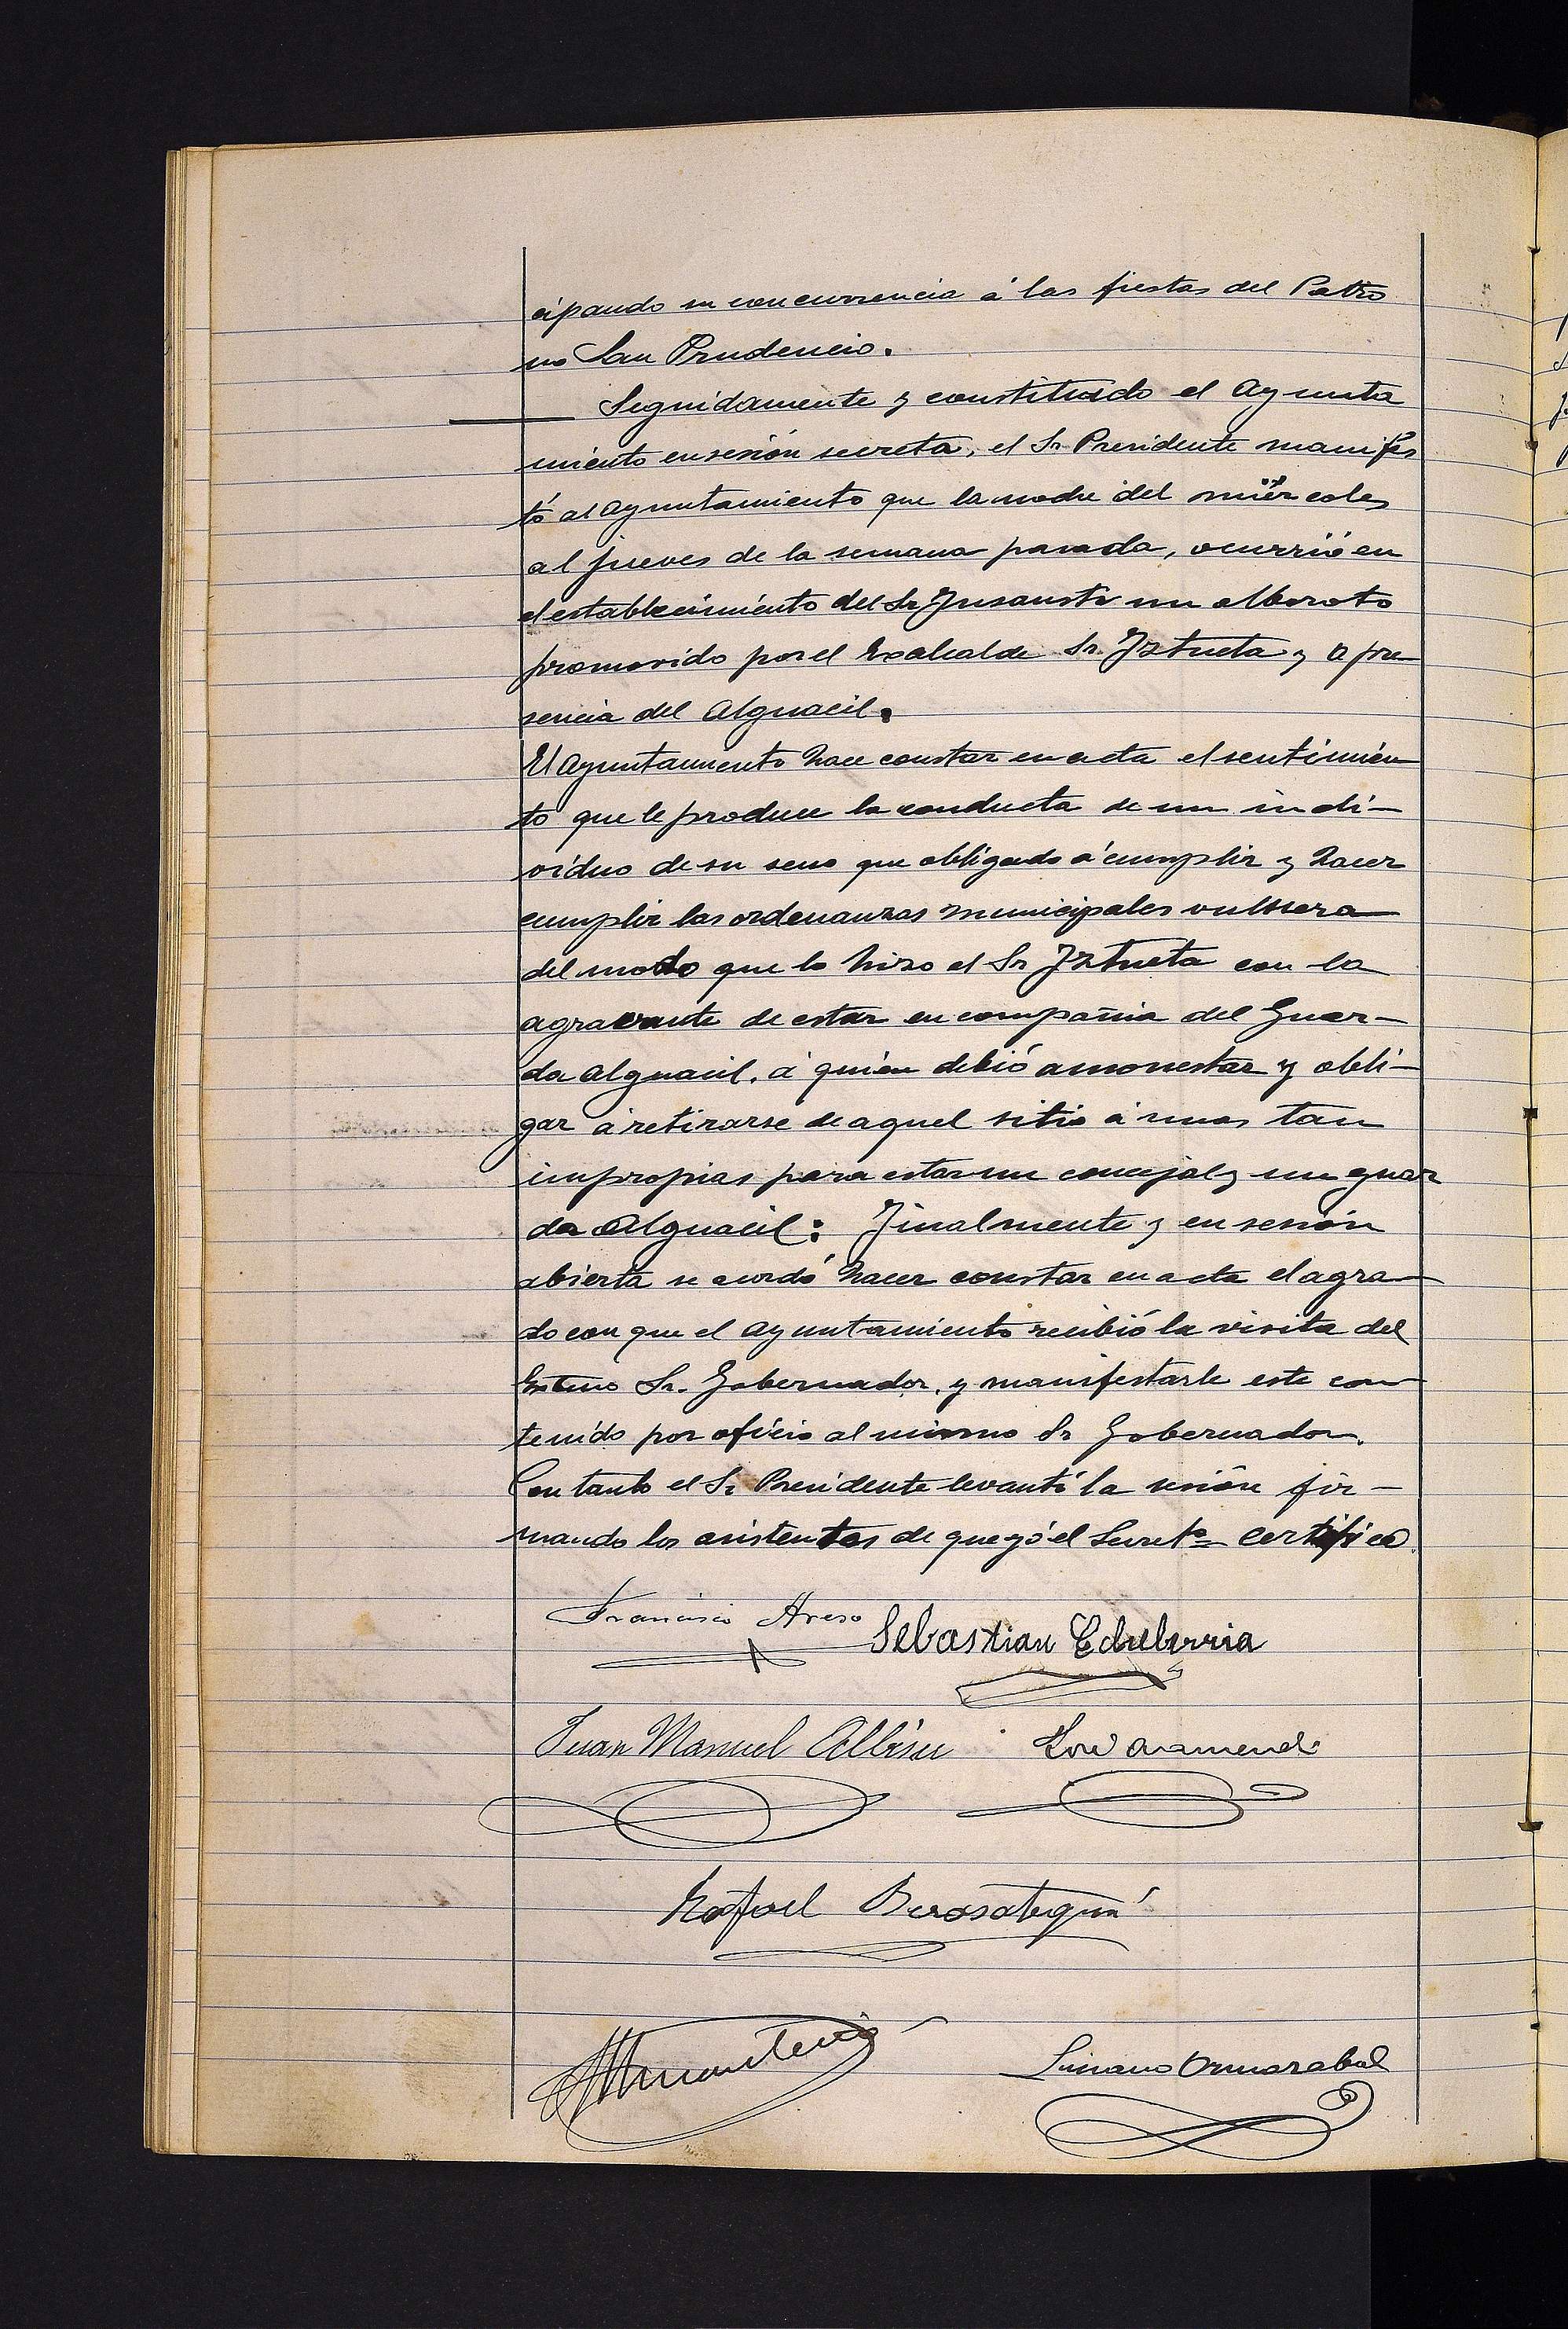 cipando su concurrencia á las fiestas del Patro
no San Prudencio.
Seguidamente y constituido el Ayunta
miento en sesión secreta, el Sr. Presidente manifes
tó al Ayuntamiento que la noche del miércoles
al jueves de la semana pasada, ocurrió en
el establecimiento del Sr. Insausti un alboroto
promovido por el Exalcalde Sr. Iztueta y a pre
sencia del Alguacil.
El Ayuntamiento hace constar en acta el sentimien
to que le produce la conducta de un indi-
viduo de su seno que obligado á cumplir y hacer
cumplir las ordenanzas municipales vulnera
del modo que lo hizo el Sr Iztueta con la
agravante de estar en compañia del Guar-
da Alguacil, á quien debió amonestar y obli-
gar á retirarse de aquel sitio á horas tan
impropias para estar un concejal y un guar
da Alguacil: Finalmente y en sesión
abierta se acordó hacer constar en acta el agra
do con que el Ayuntamiento recibió la visita del
Sr. Gobernador, y manifestarle este con
tenido por oficio al mismo Sr Gobernador.
Con tanto el Sr Presidente levantó la sesión fir-
mando los asistentes de que yó el Secretº certifico.
Francisco Areso Sebastian Echeberria
Juan Manuel Albisu José Aramendi
Rafael Berasategui
Luciano Ormazabal